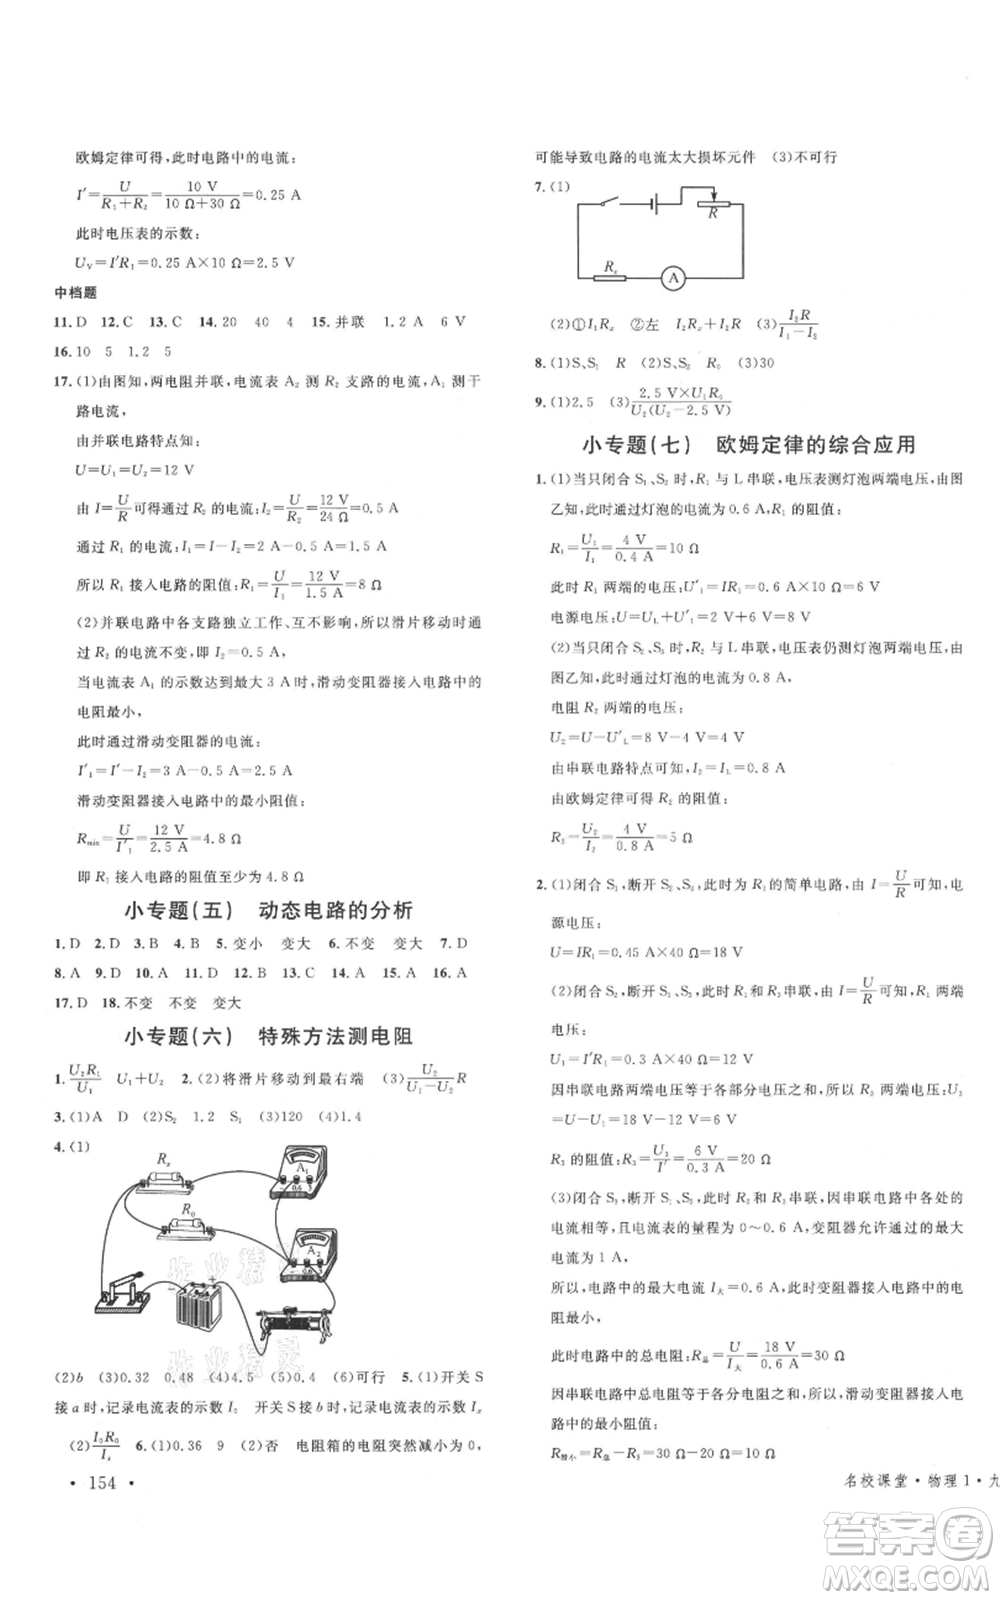 欧姆定律可得,此时电路中的电流:
I′=U/(R₁+R₂)=10 V/(10 Ω+30 Ω)=0.25 A
此时电压表的示数:
U_V=I′R₁=0.25 A×10 Ω=2.5 V
中档题
11.D 12.C 13.C 14.20 40 4 15.并联 1.2 A 6 V
16.10 5 1.2 5
17.(1)由图知,两电阻并联,电流表 A₂ 测 R₂ 支路的电流,A₁ 测干
路电流,
由并联电路特点知:
U=U₁=U₂=12 V
由 I=U/R 可得通过 R₂ 的电流:I₂=U/R₂=12 V/24 Ω=0.5 A
通过 R₁ 的电流:I₁=I-I₂=2 A-0.5 A=1.5 A
所以 R₁ 接入电路的阻值:R₁=U/I₁=12 V/1.5 A=8 Ω
(2)并联电路中各支路独立工作、互不影响,所以滑片移动时通
过 R₂ 的电流不变,即 I₂=0.5 A,
当电流表 A₁ 的示数达到最大 3 A 时,滑动变阻器接入电路中的
电阻最小,
此时通过滑动变阻器的电流:
I′₁=I′-I₂=3 A-0.5 A=2.5 A
滑动变阻器接入电路中的最小阻值:
R_min=U/I′₁=12 V/2.5 A=4.8 Ω
即 R₁ 接入电路的阻值至少为 4.8 Ω
小专题(五) 动态电路的分析
1.D 2.D 3.B 4.B 5.变小 变大 6.不变 变大 7.D
8.A 9.D 10.A 11.D 12.B 13.B 14.A 15.A 16.A
17.D 18.不变 不变 变大
小专题(六) 特殊方法测电阻
1.U₂R₁/U₁ U₁+U₂ 2.(2)将滑片移动到最右端 (3)U₂/(U₁-U₂)R
3.(1)A D (2)S₂ 1.2 S₁ (3)120 (4)1.4
4.(1)
Rₓ
A₁
- 0.6 3
R₀
A₂
- 0.6 3
- +
(2)b (3)0.32 0.48 (4)4.5 (5)0.1 (6)可行 5.(1)开关 S
接 a 时,记录电流表的示数 I₀ 开关 S 接 b 时,记录电流表的示数 Iₓ
(2)I₀R₀/Iₓ 6.(1)0.36 9 (2)否 电阻箱的电阻突然减小为 0,
·154·
可能导致电路的电流太大损坏元件 (3)不可行
7.(1)
R
Rₓ
A
(2)①I₁Rₓ ②左 I₂Rₓ+I₂R (3)I₂R/(I₁-I₂)
8.(1)S、S₁ R (2)S、S₂ R₀ (3)30
9.(1)2.5 (3)2.5 V×U₁R₀/U₂(U₂-2.5 V)
小专题(七) 欧姆定律的综合应用
1.(1)当只闭合 S₁、S₂ 时,R₁ 与 L 串联,电压表测灯泡两端电压,由图
乙知,此时通过灯泡的电流为 0.6 A,R₁ 的阻值:
R₁=U₁/I₁=4 V/0.4 A=10 Ω
此时 R₁ 两端的电压:U′₁=IR₁=0.6 A×10 Ω=6 V
电源电压:U=U_L+U′₁=2 V+6 V=8 V
(2)当只闭合 S₂、S₃ 时,R₂ 与 L 串联,电压表仍测灯泡两端电压,由
图乙知,此时通过灯泡的电流为 0.8 A,
电阻 R₂ 两端的电压:
U₂=U-U′_L=8 V-4 V=4 V
由串联电路特点可知:I₂=I_L=0.8 A
由欧姆定律可得 R₂ 的阻值:
R₂=U₂/I₂=4 V/0.8 A=5 Ω
2.(1)闭合 S₁,断开 S₂、S₃,电路为 R₁ 的简单电路,由 I=U/R 可知,电
源电压:
U=IR₁=0.45 A×40 Ω=18 V
(2)闭合 S₂,断开 S₁、S₃,电路中 R₁ 和 R₃ 串联,由 I=U/R 可知,R₁ 两端
电压:
U₁=I′R₁=0.3 A×40 Ω=12 V
因串联电路两端电压等于各部分电压之和,所以 R₃ 两端电压:U₃
=U-U₁=18 V-12 V=6 V
R₃ 的阻值:R₃=U₃/I′=6 V/0.3 A=20 Ω
(3)闭合 S₃,断开 S₁、S₂,电路中 R₂ 和 R₃ 串联,因串联电路中各处的
电流相等,且电流表的量程为 0～0.6 A,变阻器允许通过的最大
电流为 1 A,
所以,电路中的最大电流 I大=0.6 A,此时变阻器接入电路的电阻
最小,
此时电路中的总电阻:R总=U/I大=18 V/0.6 A=30 Ω
因串联电路中总电阻等于各分电阻之和,所以,变阻器接入电
路中的最小阻值:
R滑小=R总-R₃=30 Ω-20 Ω=10 Ω
名校课堂·物理 1·九
答案卷